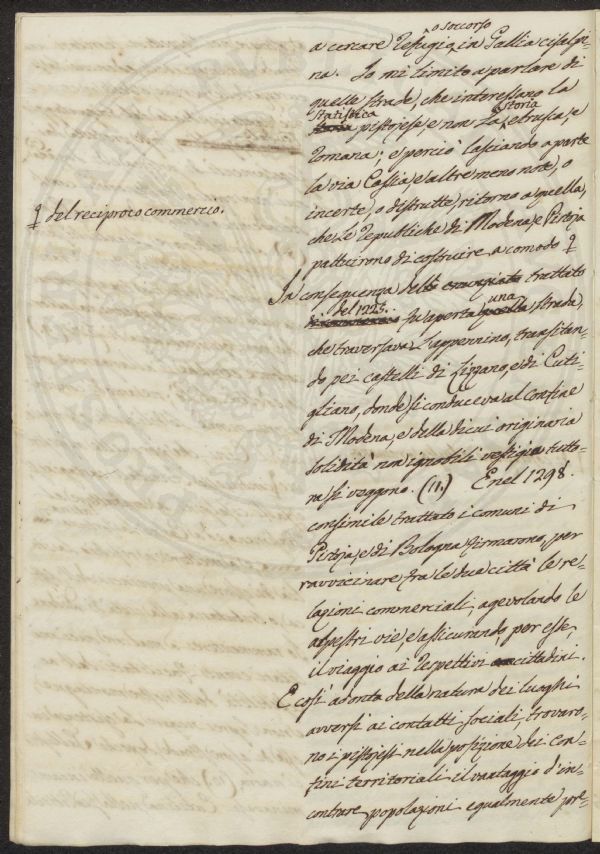 o soccorso
a cercare refugio, in Gallia cisalpi-
na. Io mi limito a parlare di
quelle strade, che interessano la
statistica storia
pistojese, e non la etrusca, e
romana; e perciò lasciando a parte
la via Cassia, e altre meno note, o
incerte, o distrutte, ritorno a quella,
che le republiche di Modena, e Pistoja
pattuirono di costruire a comodo
del reciproco commercio.
In consequenza dello enunciato trattato
del 1225. una
fu aperta quella strada,
che traversava l'appennino, transitan-
do pei castelli di Lizzano, e di Cuti-
gliano, donde si conduceva al confine
di Modena, e della di cui originaria
solidità non ignobili vestigia tutto-
ra si veggono. (11.) E nel 1298.
consimile trattato i comuni di
Pistoja, e di Bologna firmarono, per
ravvicinare fra le due città le re-
lazioni commerciali, agevolando le
alpestri vie, e assicurando, per esse,
il viaggio ai respettivi cittadini.
E così adonta della natura dei luoghi
avversi ai contatti sociali, trovaro-
no i pistojesi nella posizione dei con-
fini territoriali il vantaggio d'in-
contrare popolazioni egualmente pre-